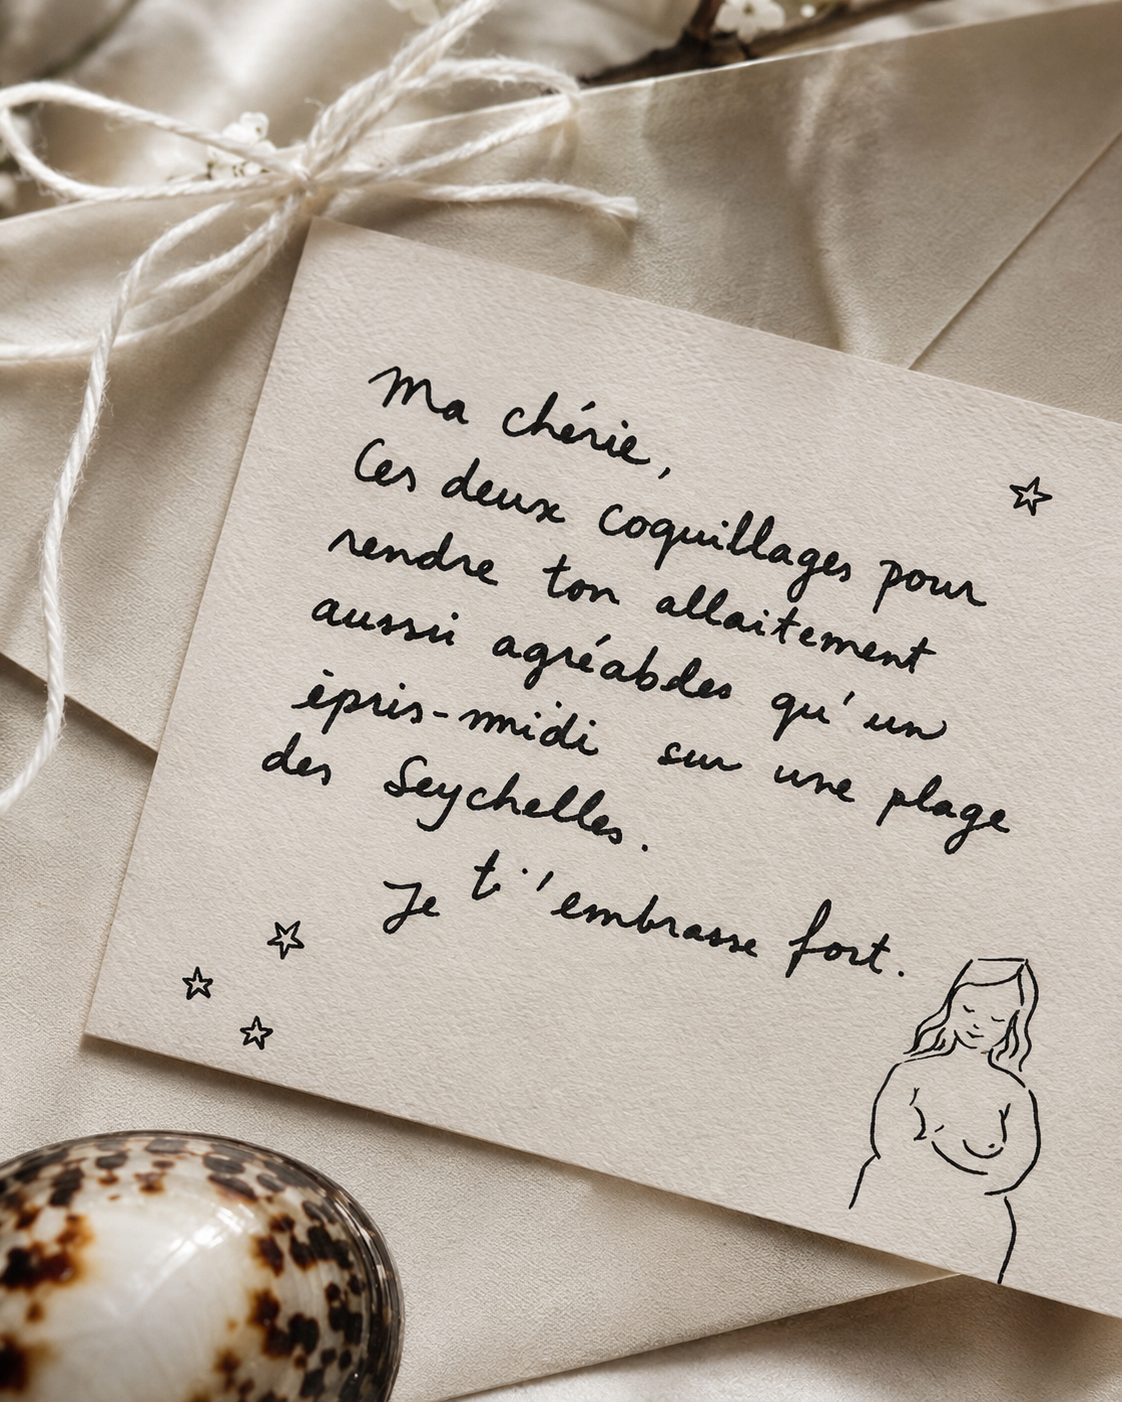 Ma chérie,
Ces deux coquillages pour
rendre ton allaitement
aussi agréabdes qu'un
èpris-midi sur une plage
des Seychelles.
Je t'embrasse fort.